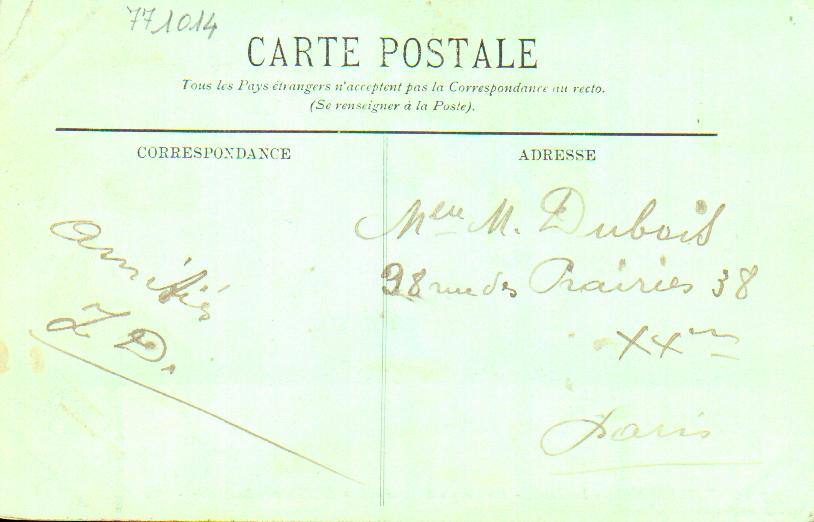 771014
CARTE POSTALE
Tous les Pays étrangers n'acceptent pas la Correspondance au recto.
(Se renseigner à la Poste).
CORRESPONDANCE
ADRESSE
Amitiés
D.
M. Dubois
rue des Prairies 38
XXme
Paris